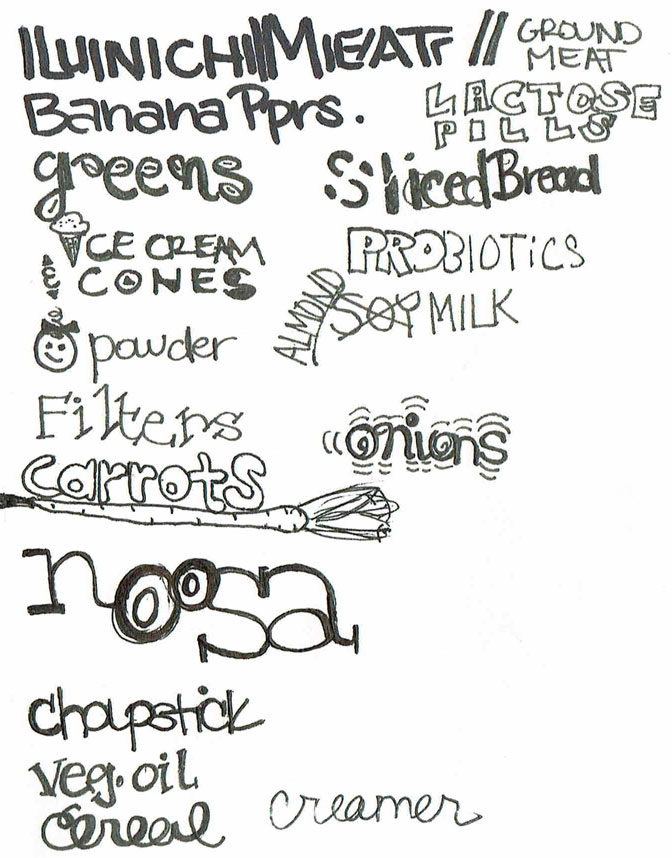 LUNCH MEAT // GROUND MEAT
Banana Pprs.
LACTOSE
PILLS
greens
Sliced Bread
ICE CREAM
& CONES
PROBIOTICS
ALMOND
SOY MILK
powder
Filters
onions
carrots
noosa
chapstick
Veg. oil
cereal
creamer